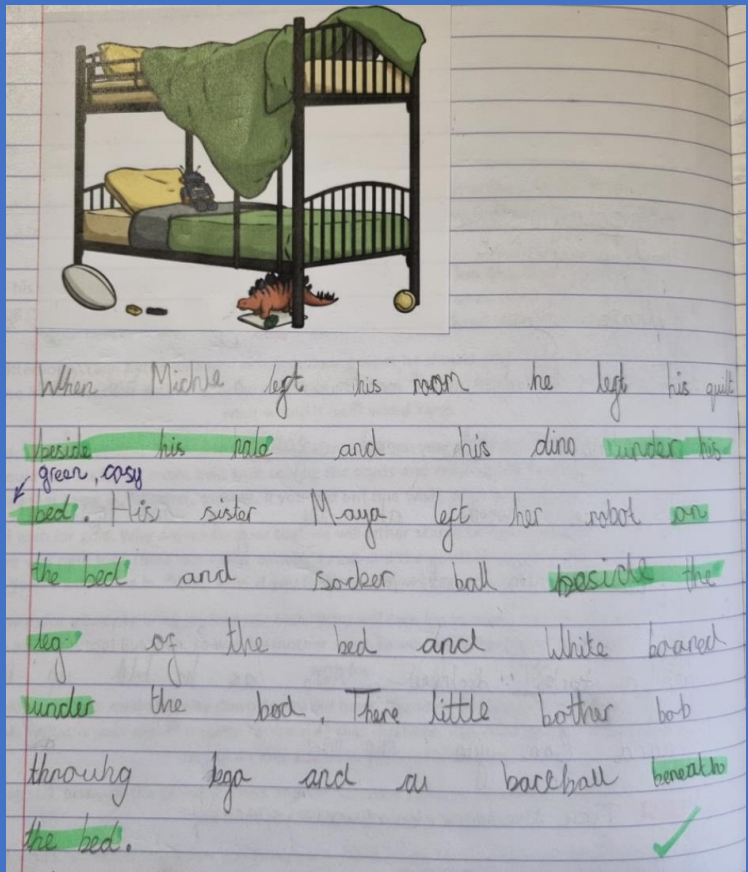 When Michle left his room he left his quilt
beside his pale and his dino under his
green, cosy
bed. His sister Maya left her robot on
the bed and socker ball beside the
leg of the bed and White boared
under the bed. There little bother bob
throwhg lega and au baceball beneath
the bed.